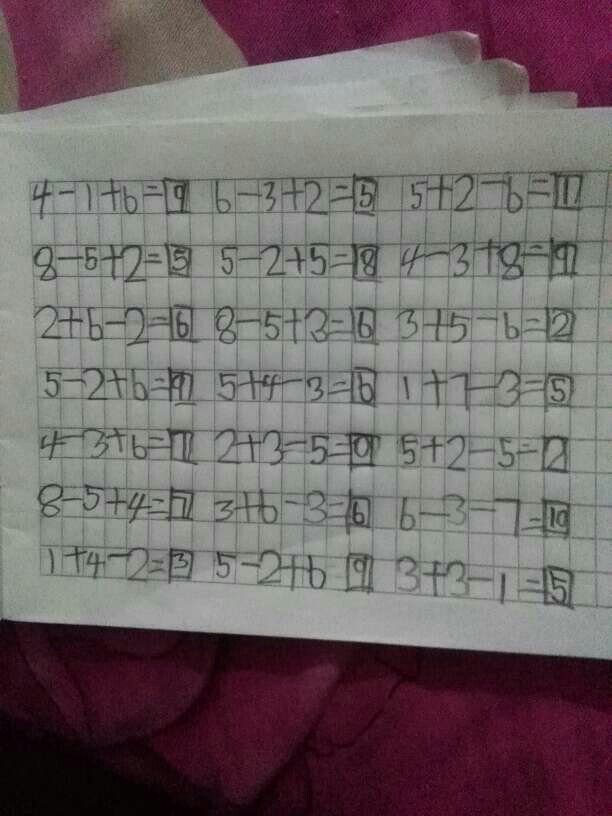 4-1+6=9 6-3+2=5 5+2-6=1
8-5+2=5 5-2+5=8 4-3+8=9
2+6-2=6 8-5+3=6 3+5-6=2
5-2+6=9 5+4-3=6 1+7-3=5
4-3+6=7 2+3-5=0 5+2-5=2
8-5+4=7 3+6-3=6 6-3-7=10
1+4-2=3 5-2+6 9 3+3-1=5